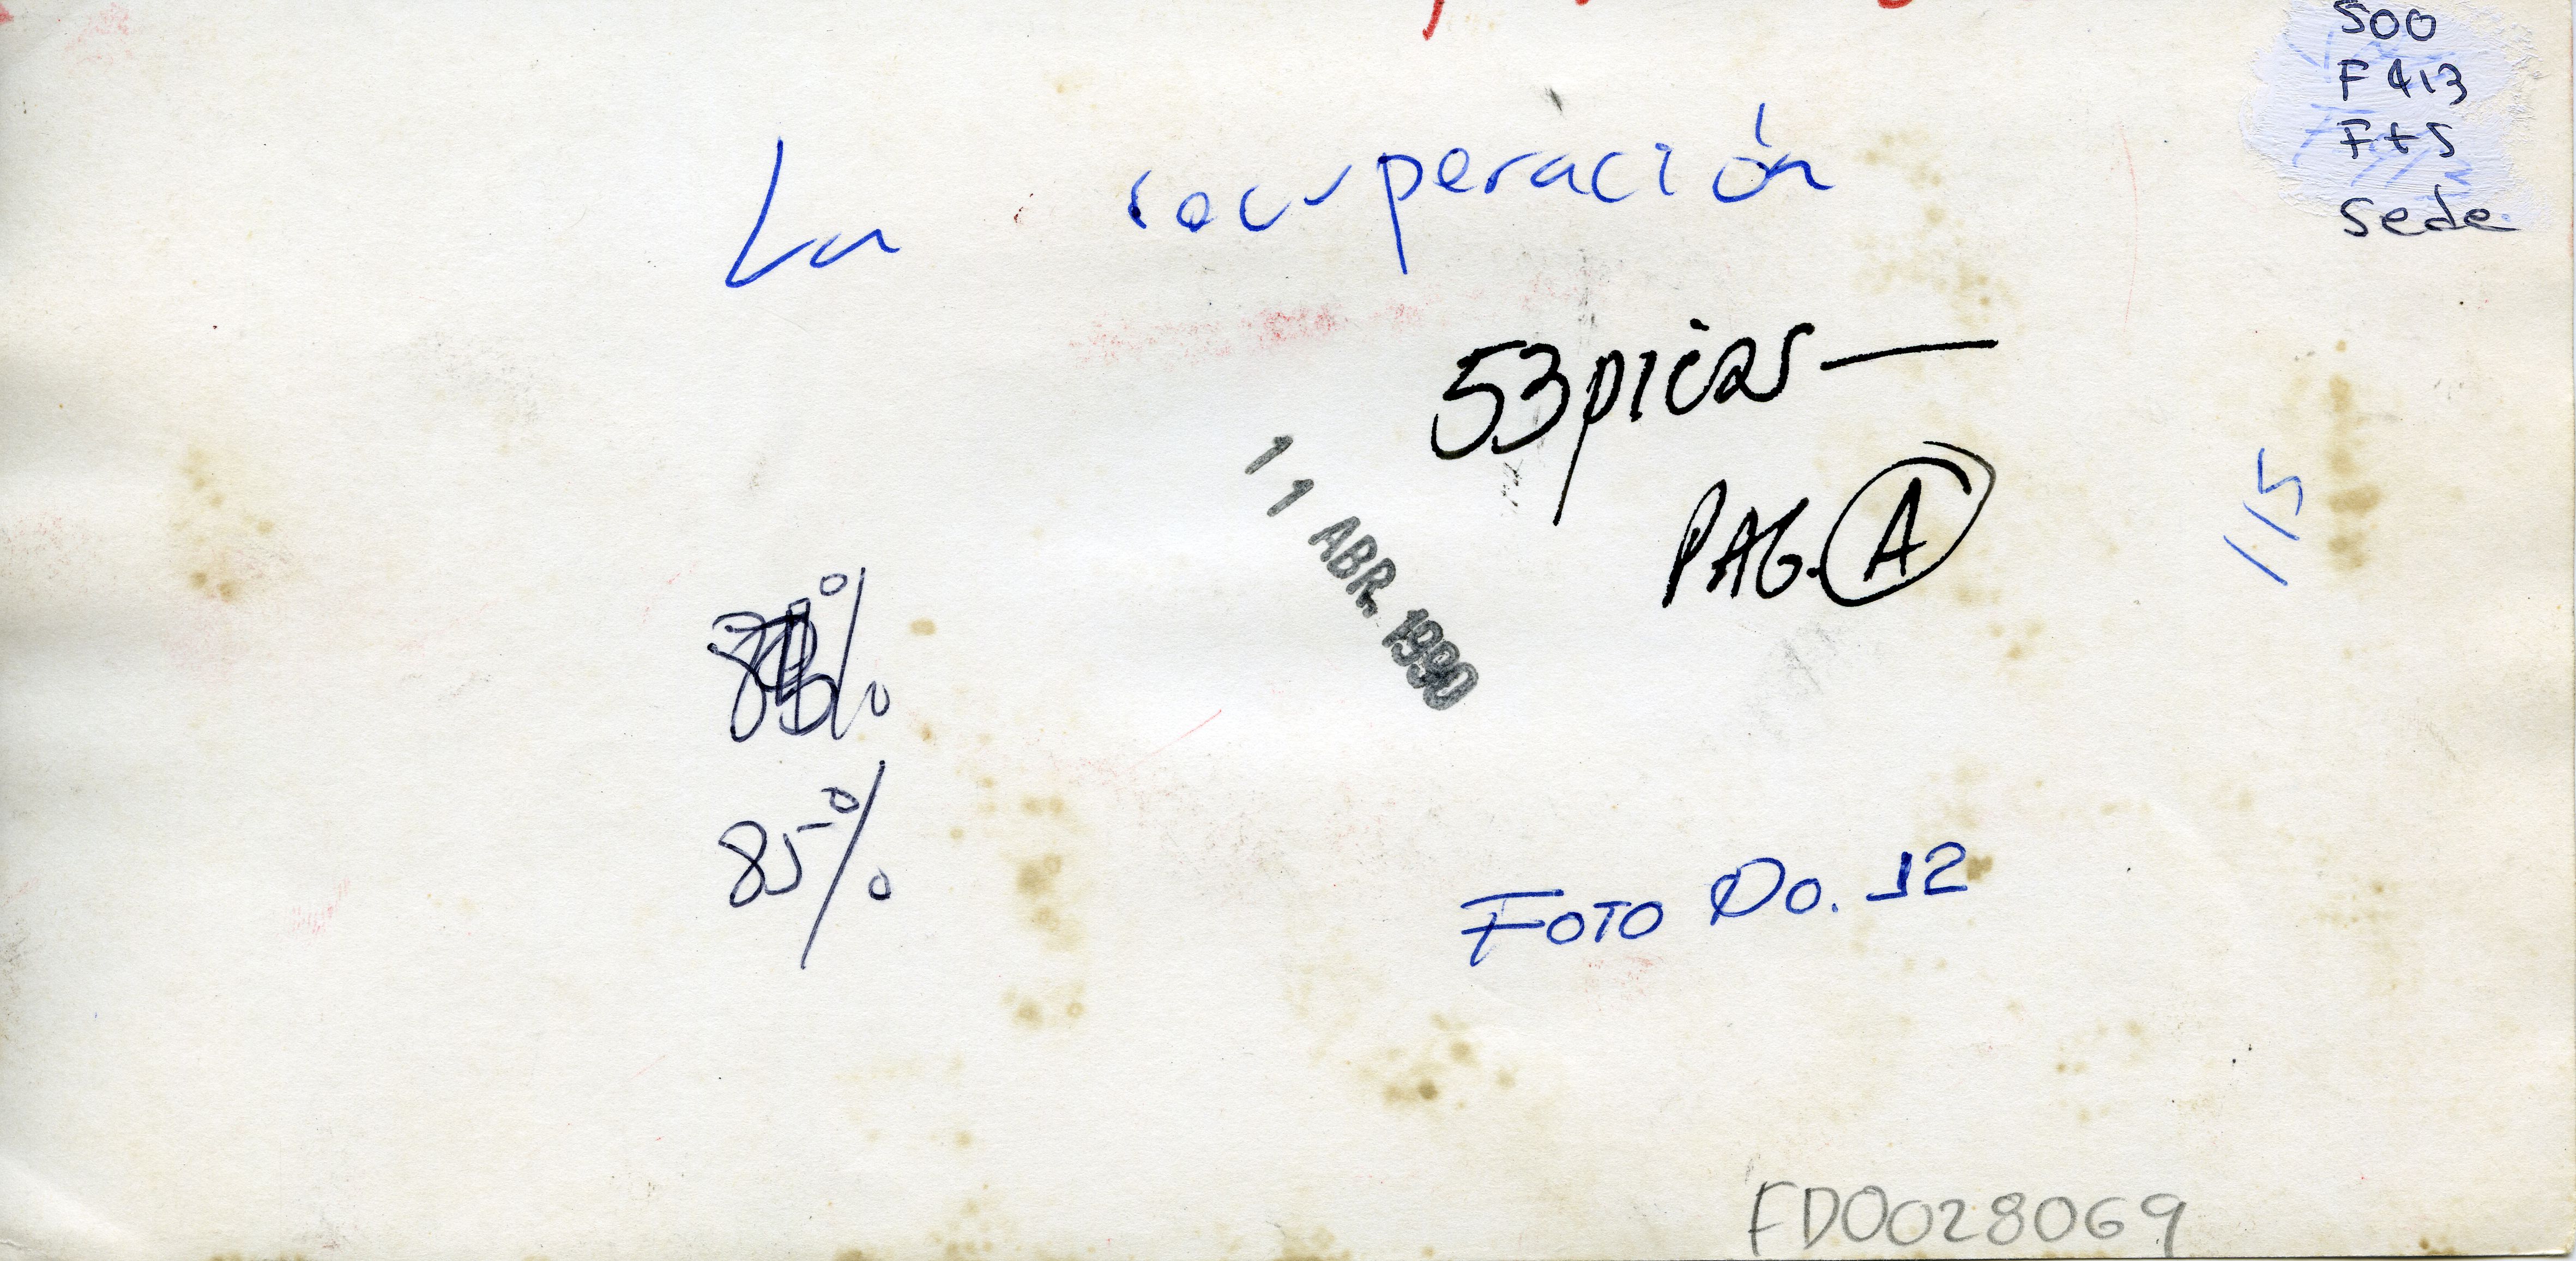 500
F413
F+S
Sede
La recuperación
53 picas —
PAG. A
11 ABR. 1990
115
85%
FOTO No. 12
FD0028069